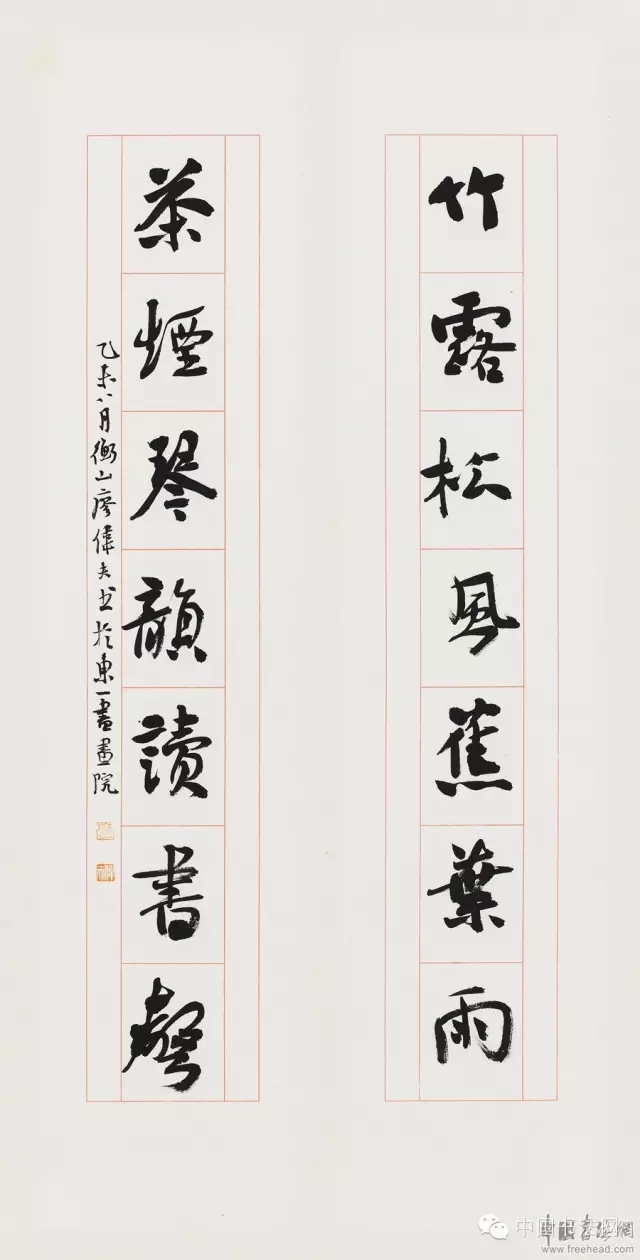 竹露松風蕉葉雨
茶煙琴韻讀書聲
乙未八月衡山廖偉夫书於東一畫畫院
中国书法网
www.freehead.com